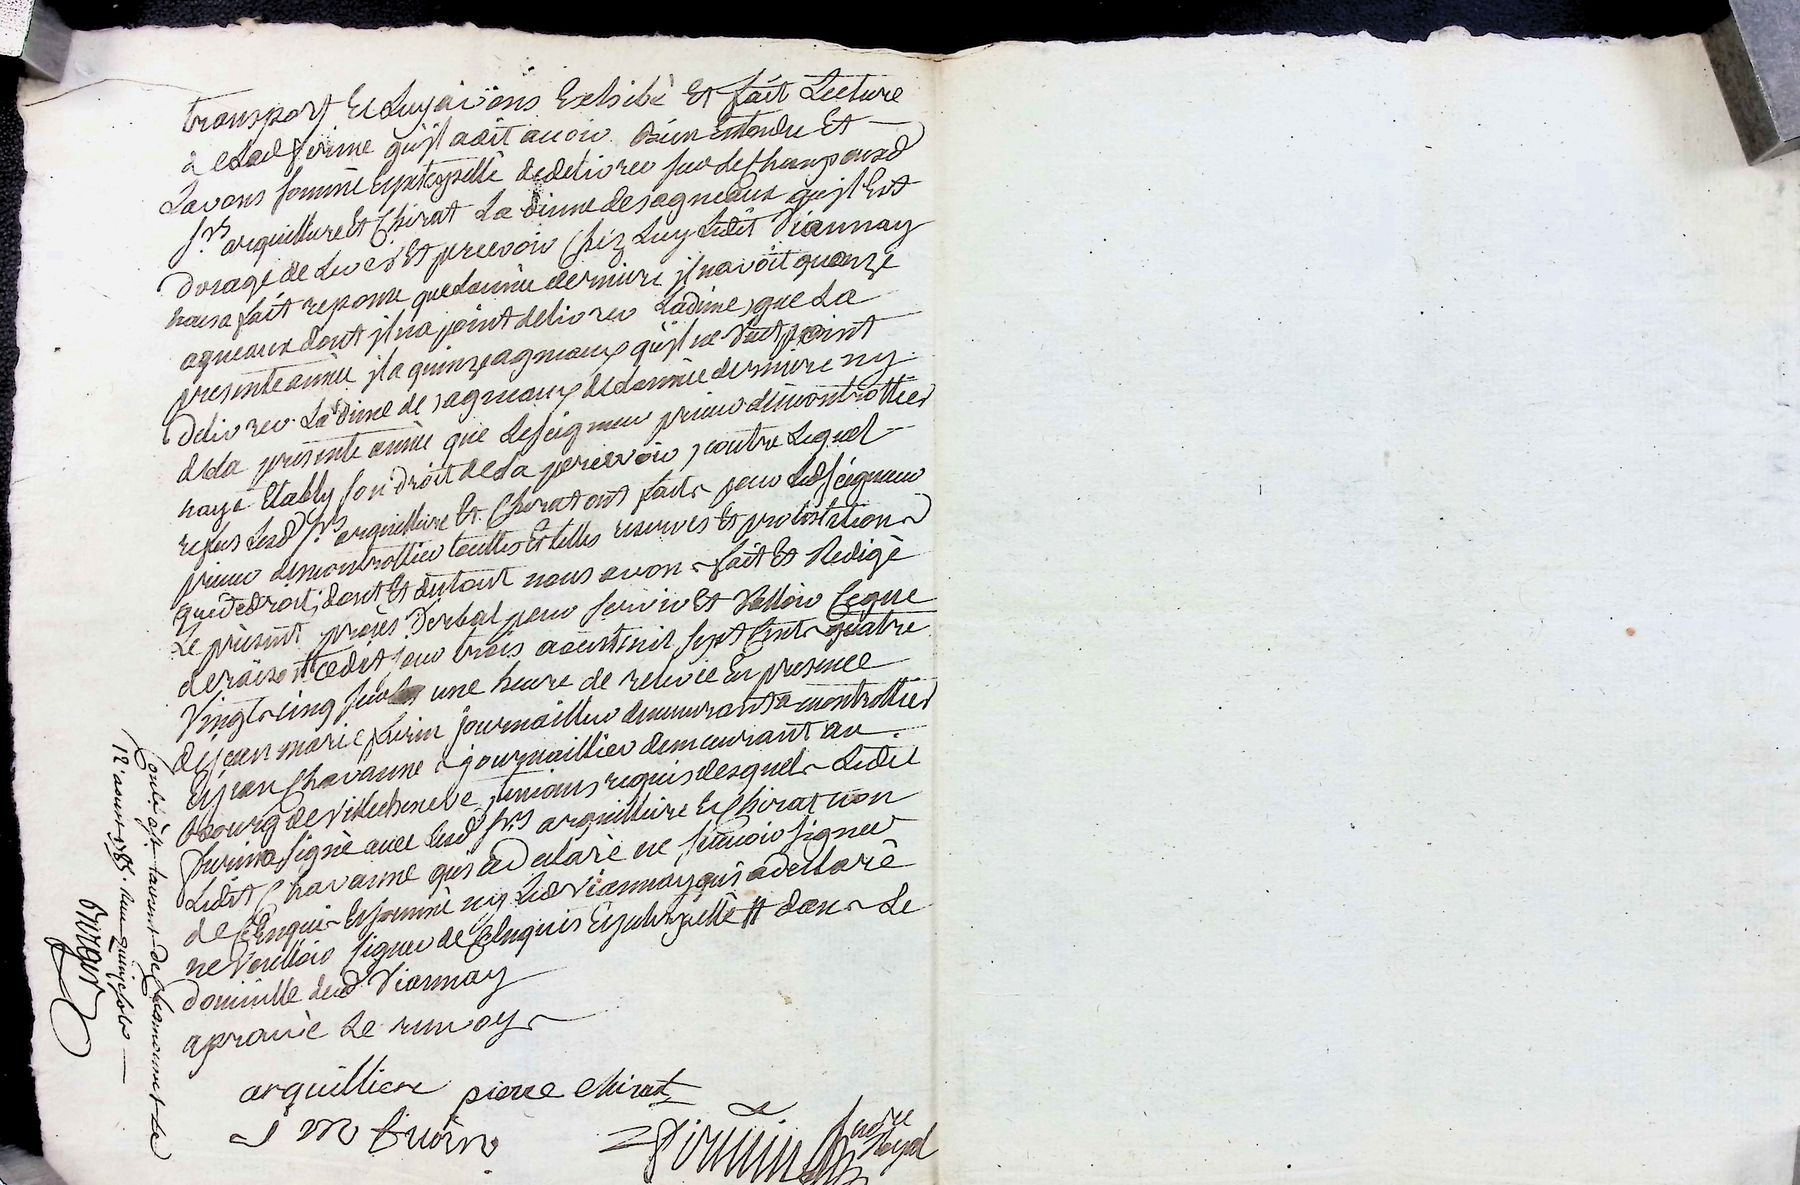 transport Et Luy avons Exhibé Et fait Lecture
qu'jl a dit avoir bien Entendu Et
Lavons sommé Et jnterpellé de delivrer sur le champ ausd
srs arquilliere Et Chirat La dime des agneaux qu'jl Est
dusage de Lever Et percevoir chéz Luy Ledit Viannay
nous a fait reponse que Lannée derniere jl navoit quonze
agneaux dont jl na point delivrer La dime, que La
presente année jl a quinze agneaux qu'jl ne Veut point
Delivrer La dime des agneaux de Lannée derniere ny
de La presente année que Le seigneur prieur de montrottier
naye Etably son droit de La percevoir, contre Lequel
refus Lesd srs arquilliere Et Chirat ont fait pour Led seigneur
prieur de montrottier touttes Et telles reserves Et protestations
que de droit, dont Et du tout nous avons fait Et Redigé
Le présent procès Verbal pour servir Et Valloir Ceque
de raison Cedit jour trois aoust mil sept Cent quatre
Vingt cinq sur les une heure de relevée En presence
de jean marie furin journaillier demeurant a montrottier
Et jean Chavanne journaillier demeurant au
bourg de Villecheneve temoins requis desquels Ledit
furin a signé avec Lesd srs arquilliere Et Chirat non
Ledit Chavanne qui a declaré ne scavoir signer
de Ce Enquis Et sommé ny Led Viannay qui a declaré
ne Voulloir signer de Ce Enquis Et jnterpellé # dans Le
domicille dud Viannay
aprouvé Le renvoy
arquilliere pierre Chirat
J M furin
Huissier
Royal
Contlé à st laurent de Chamousset Le
12 aoust 1785 Reçu quinze sols